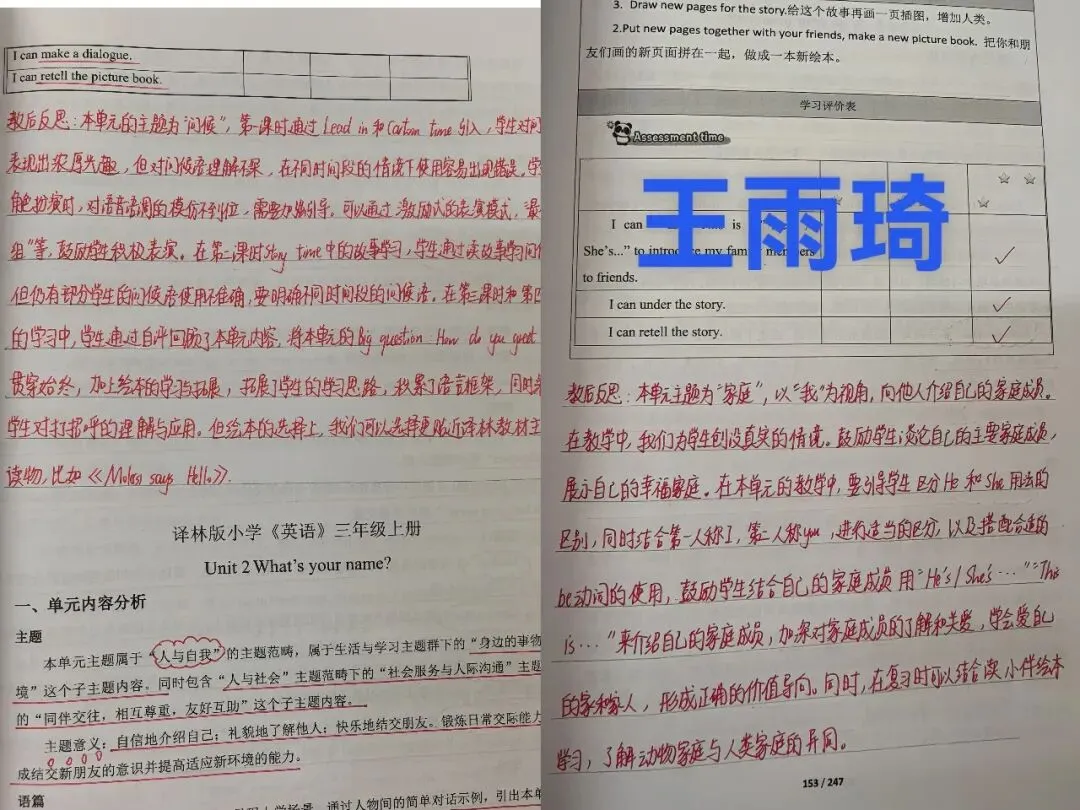 I can make a dialogue.
I can retell the picture book.
教后反思:本单元的主题为“问候”,第一课时通过Lead in和Cartoon time引入,学生对问
表现出浓厚兴趣,但对问候语理解不深,在不同时间段的情境下使用容易出现错误。学
角色扮演时,对语音语调的模仿不到位,需要加强引导。可以通过激励式的表演模式,“最
组”等,鼓励学生积极表演。在第二课时Story time中的故事学习,学生通过读故事学问候
但仍有部分学生的问候语使用不准确,要明确不同时间段的问候语。在第三课时和第四
的学习中,学生通过自评回顾了本单元内容,将本单元的Big question: How do you greet
贯穿始终,加上绘本的学习与拓展,拓展了学生的学习思路,积累了语言框架,同时
学生对打招呼的理解与应用。但绘本的选择上,我们可以选择更贴近译林教材主
读物,比如《Moles says Hello》.
译林版小学《英语》三年级上册
Unit 2 What's your name?
一、单元内容分析
主题
本单元主题属于“人与自我”的主题范畴,属于生活与学习主题群下的“身边的事物
境”这个子主题内容。同时包含“人与社会”主题范畴下的“社会服务与人际沟通”主题
的“同伴交往,相互尊重,友好互助”这个子主题内容。
主题意义:自信地介绍自己;礼貌地了解他人;快乐地结交朋友。锻炼日常交际能力
成结交新朋友的意识并提高适应新环境的能力。
语篇
通过人物间的简单对话示例,引出本单
3. Draw new pages for the story.给这个故事再画一页插图,增加人类。
2.Put new pages together with your friends, make a new picture book. 把你和朋
友们画的新页面拼在一起,做成一本新绘本。
学习评价表
Assessment time
王雨琦
I can is
She's...” to introduce my family members
to friends.
I can under the story.
I can retell the story.
教后反思:本单元主题为“家庭”,以“我”为视角,向他人介绍自己的家庭成员。
在教学中,我们为学生创设真实的情境。鼓励学生谈论自己的主要家庭成员,
展示自己的幸福家庭。在本单元的教学中,要引导学生区分He和She用法的
区别,同时结合第一人称I,第二人称you,进行适当的区分,以及搭配合适的
be动词的使用,鼓励学生结合自己的家庭成员用“He's/She's...”“This
is...”来介绍自己的家庭成员,加深对家庭成员的了解和关爱,学会爱自己
的家和家人,形成正确的价值导向。同时,在复习时可以结合读小伴绘本
学习,了解动物家庭与人类家庭的异同。
153 / 247